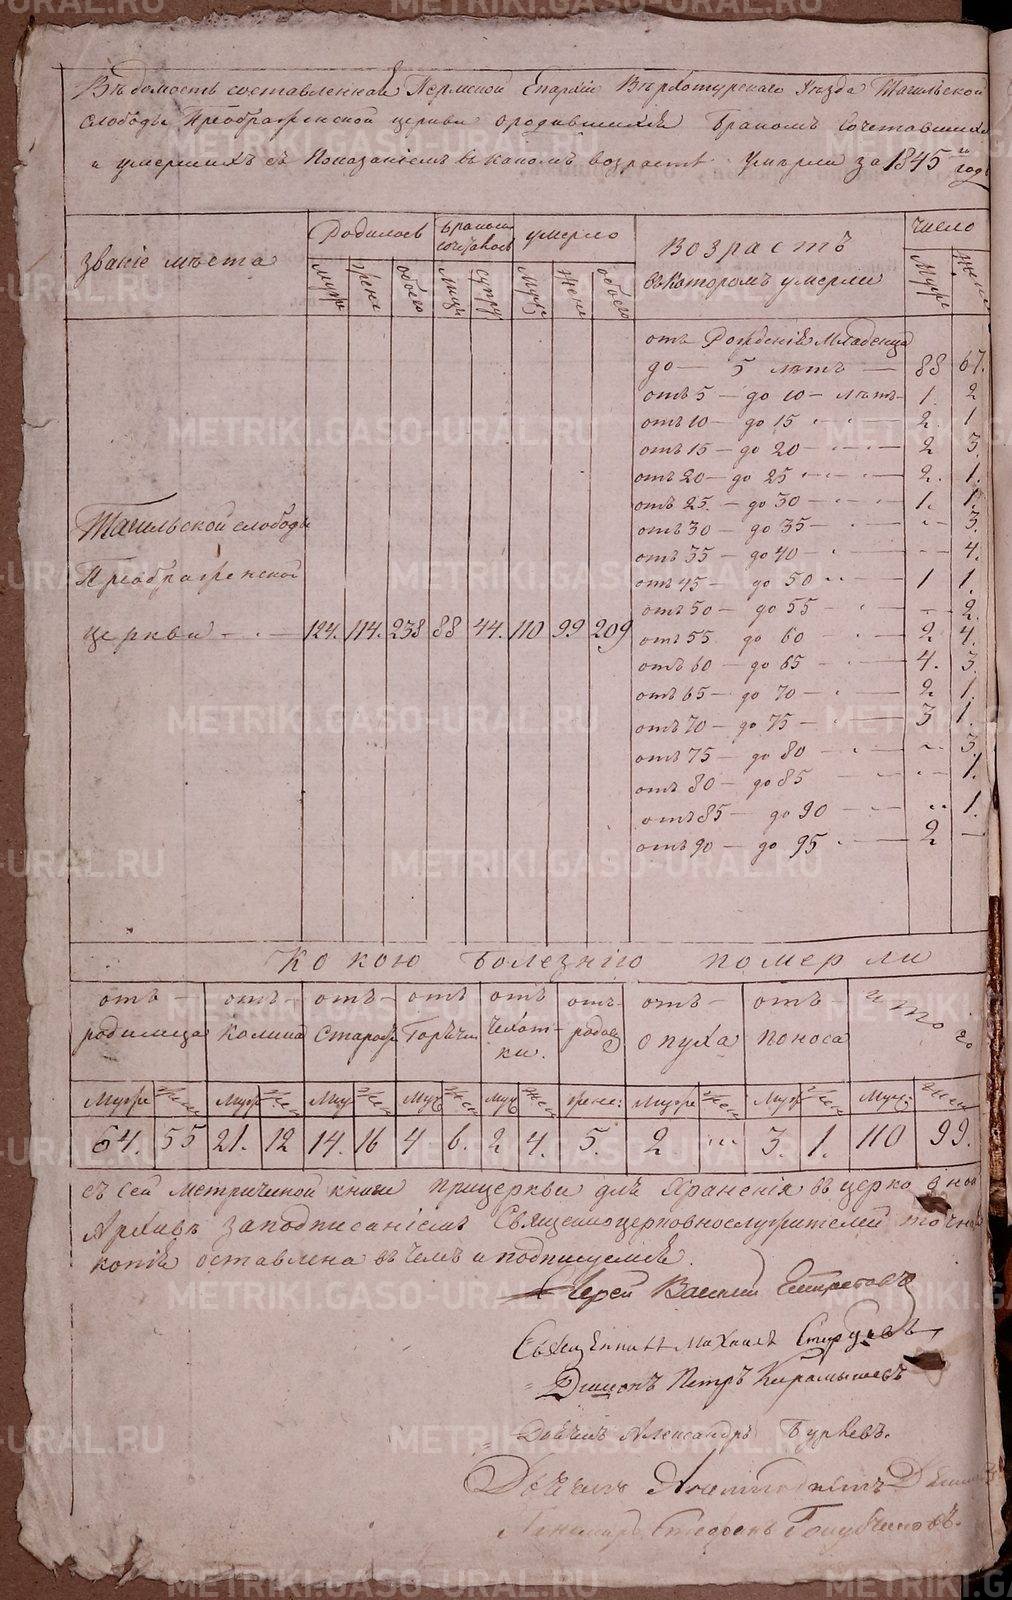 Ведомость составленная Пермской Епархіи Верхотурскаго Уезда Тагильской
слободы Преображенской церкви ородившихся Бракомъ Сочетавшихся
и умершихъ съ Показаніемъ въ какомъ возрасте Умерли за 1845й годъ
званіе места
Родилось
бракомъ сочеталось
умерло
Возрастъ
вкоторомъ умерли
число
муж
жен
обоего
лицъ
супру
Муж
жен
обоего
Муж
Жен
отъ Рожденія Младенца
до — 5 летъ — 88 67.
отъ 5 — до 10 — летъ — 1. 2
отъ 10 — до 15 2. 1
отъ 15 — до 20 — 2 3.
отъ 20 — до 25 2. 1.
отъ 25. — до 30 1. 1.
отъ 30 — до 35 — 3.
отъ 35 — до 40 — 4.
отъ 45 — до 50 1 1.
отъ 50 — до 55 — 2.
отъ 55 до 60 — 2 4.
отъ 60 — до 65 — 4. 3.
отъ 65 — до 70 — 2 1.
отъ 70 — до 75 — 3 1.
отъ 75 — до 80 3.
отъ 80 — до 85 1.
отъ 85 — до 90 1.
отъ 90 — до 95 2 —
Тагильской слободы
Преображенской
церкви 124. 114. 238 88 44. 110 99 209
Какою болезнію помер ли
отъ родимца
отъ кашля
отъ Старости
отъ Горячки
отъ Чехот-ки.
отъ родов
отъ опуха
отъ поноса
итого
Муж Жен Муж Жен Муж Жен Муж Жен Муж Жен жен: Муж Жен Муж Жен Муж Жен
64. 55 21. 12 14. 16 4 6. 2 4. 5. 2 3. 1. 110 99.
съ сей метрической книги прицеркви для Храненія въ церковной
Архивъ заподписаніемъ Священноцерковнослужителей точная
копія оставлена въ чемъ и подписуемся.
Іерей Василій
Священникъ Михаилъ
Діаконъ Петръ Карамышевъ
Дьячекъ Александръ
Дьячекъ
Пономарь Стефанъ Голубчиковъ.
METRIKI.GASO-URAL.RU